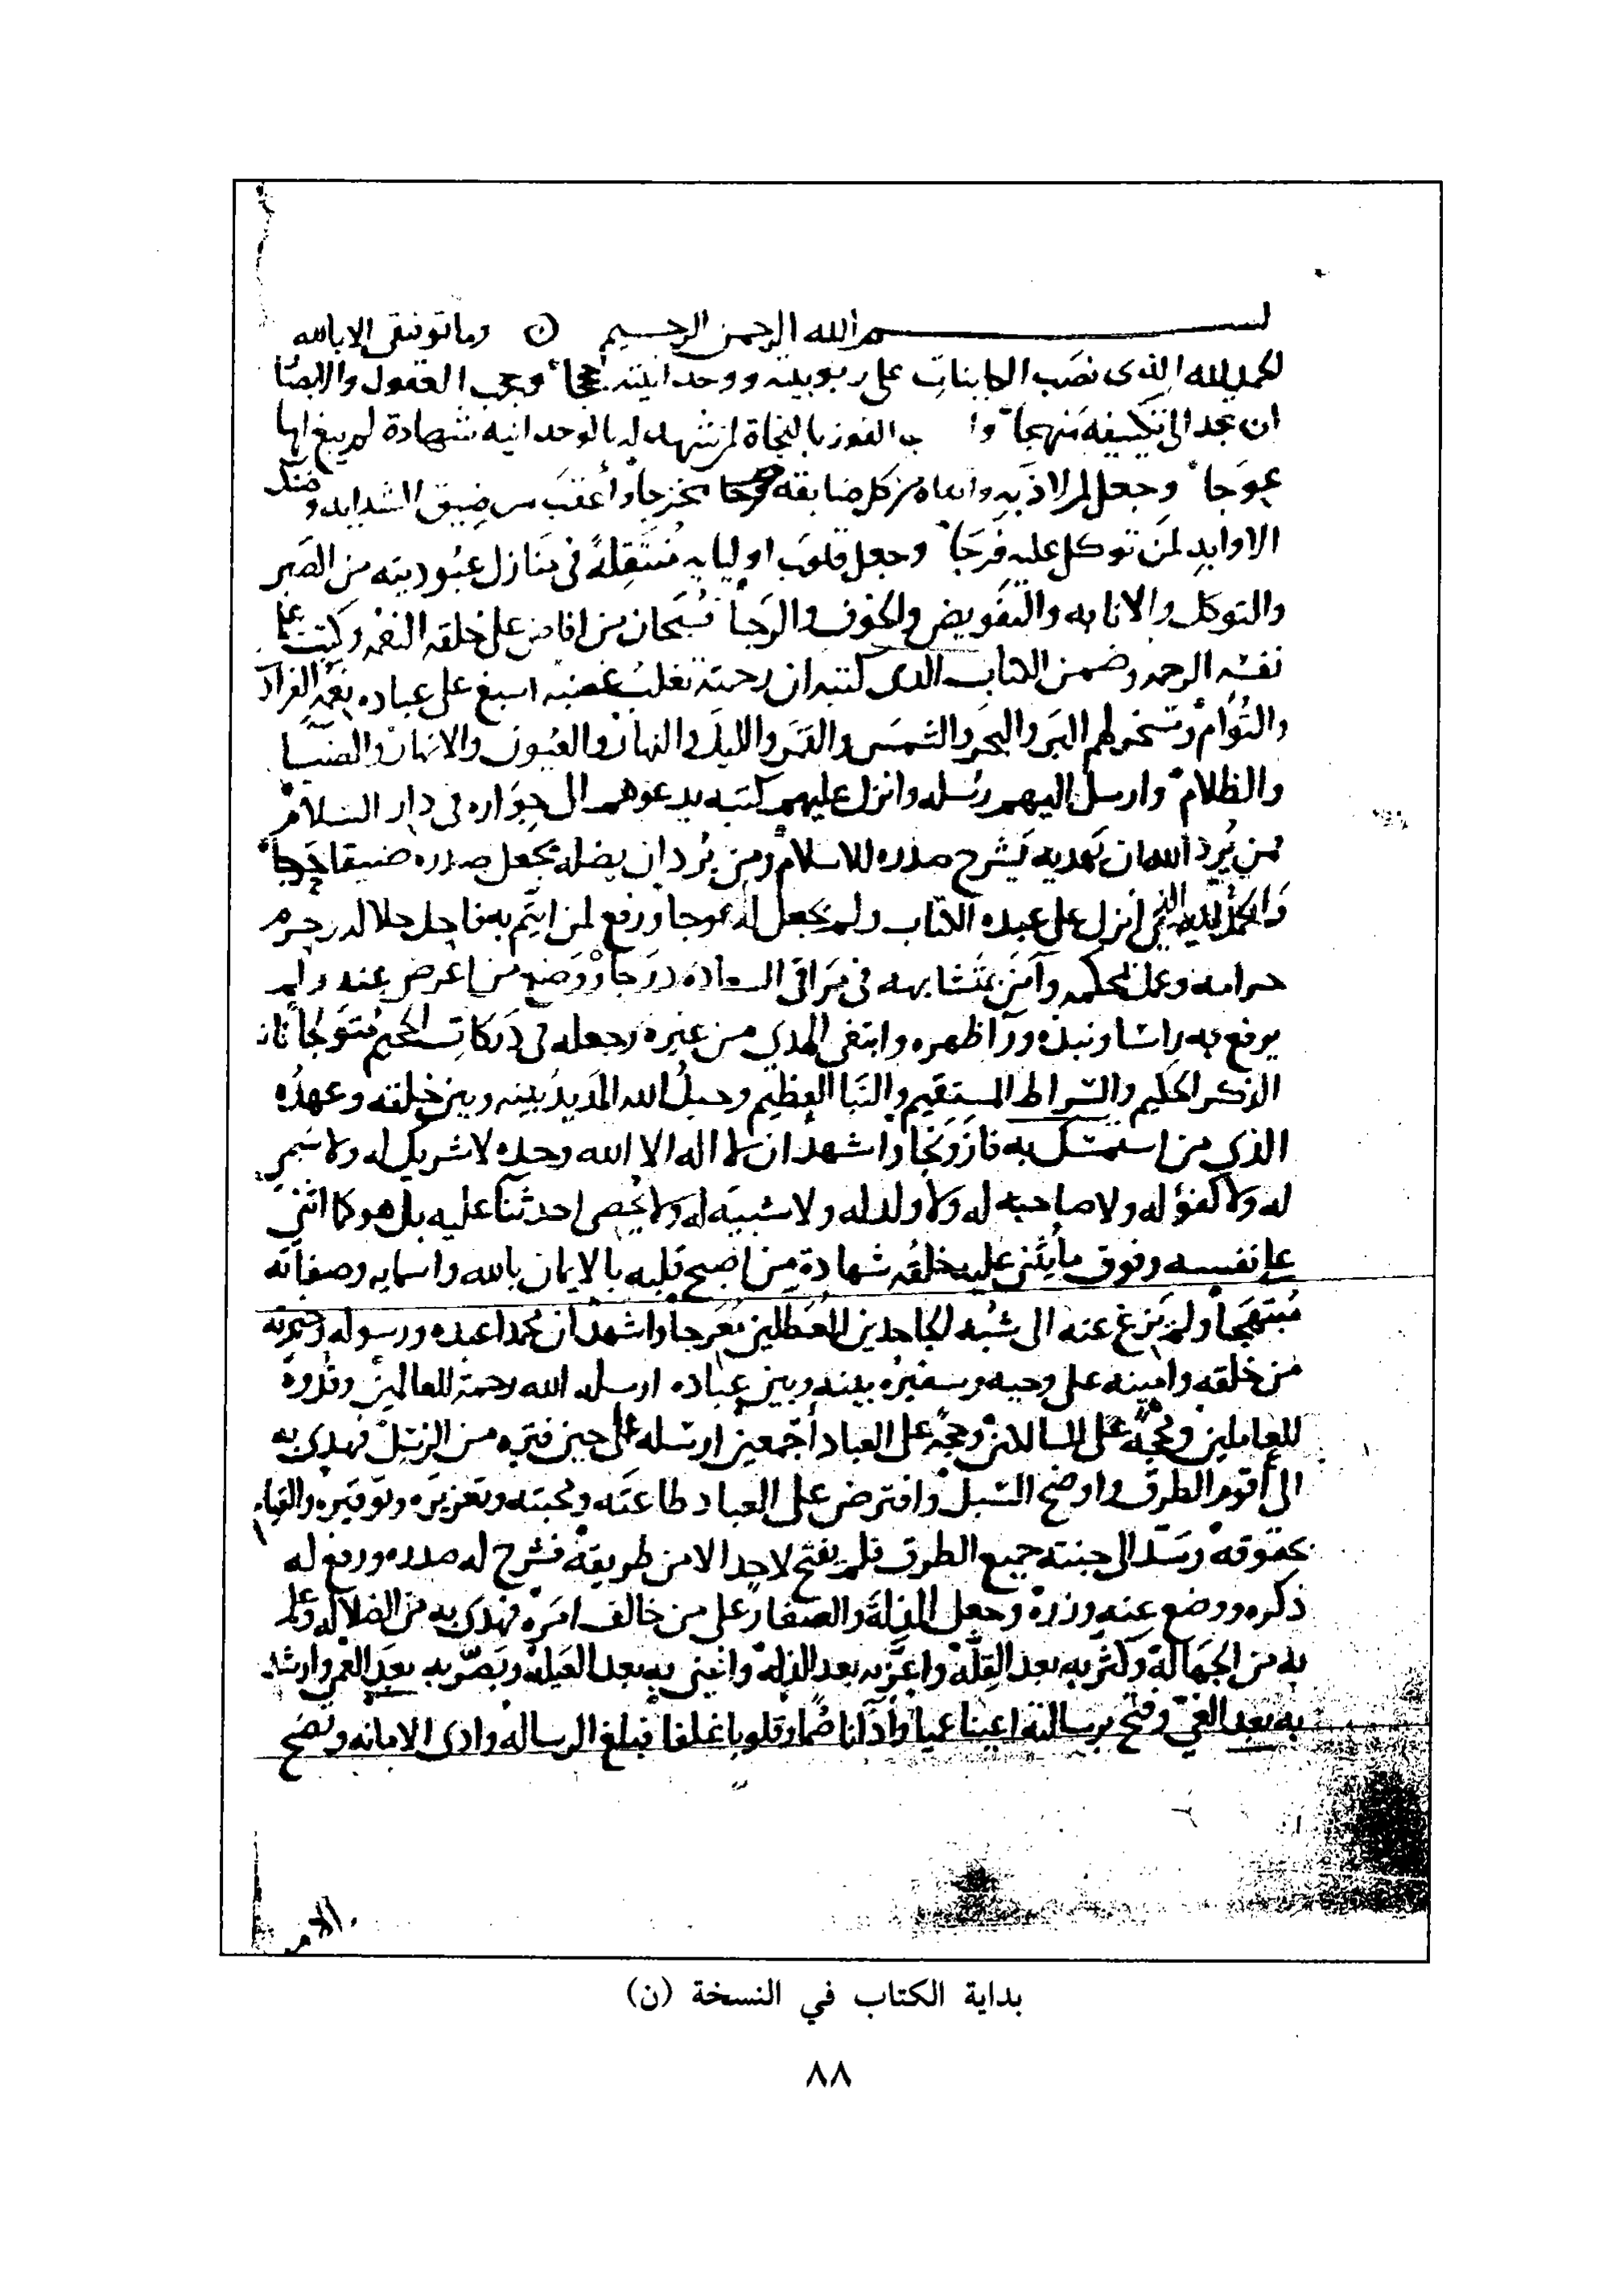 بسم الله الرحمن الرحيم ○ وما توفيقي الا بالله
الحمد لله الذى نصَب الكاينات على ربوبيته ووحدانيته حججا وحجب العقول والابصا
ان تجد الى تكييفه منهجا وا ب الفوز بالنجاة لمن شهد له بالوحدانيه شهادة لم يبغ لها
عوجا وجعل لمن لاذ به واتقاه من كل ضايقه مخرجا واعقب من ضيق الشدايد وضنك
الاوابد لمن توكل عليه فرجا وجعل قلوب اوليايه متنقلة فى منازل عبوديته من الصبر
والتوكل والانابه والتفويض والخوف والرجا فسبحان من افاض على خلقه النعمه وكتب على
نفسه الرحمه وضمن الكتاب الذى كتبه ان رحمته تغلب غضبه اسبغ على عباده نعمه الفراد
والتوام وسخر لهم البر والبحر والشمس والقمر والليل والنهار والعيون والانهار والضيا
والظلام وارسل اليهم رسله وانزل عليهم كتبه يدعوهم الى جواره فى دار السلام
فمن يرد الله ان يهديه يشرح صدره للاسلام ومن يرد ان يضله يجعل صدره ضيقا حرجا
والحمد لله الذي انزل على عبده الكتاب ولم يجعل له عوجا ورفع لمن ايتم به فاحل حلاله وحرم
حرامه وعمل بمحكمه وآمن بمتشابهه فى مراقى السعاده درجا ووضع من اعرض عنه ولم
يرفع به راسا ونبذه ورآ ظهره وابتغى الهدي من غيره وجعله فى دركات الجحيم متولجا فانه
الذكر الحكيم والصراط المستقيم والنبا العظيم وحبل الله المديد بينه وبين خلقه وعهده
الذي من استمسك به فاز ونجا واشهد ان لا اله الا الله وحده لا شريك له ولا سمي
له ولا كفؤ له ولا صاحبه له ولا ولد له ولا شبيه له ولا يحصى احد ثنآ عليه بل هو كما اثنى
على نفسه وفوق ما يثنى عليه خلقه شهادة من اصبح قلبه بالايمان بالله واسمايه وصفاته
مبتهجا ولم يزغ عنه الى شبه الجاحدين المعطلين معرجا واشهد ان محمدا عبده ورسوله وخيرته
من خلقه وامينه على وحيه وسفيره بينه وبين عباده ارسله الله رحمة للعالمين وقدوة
للعاملين ومحجة على السالكين وحجة على العباد اجمعين ارسله على حين فتره من الرسل فهدى به
الى اقوم الطرق واوضح السبل وافترض على العباد طاعته ومحبته وتعزيره وتوقيره والقيام
بحقوقه وسد الى جنته جميع الطرق فلم يفتح لاحد الا من طريقه فشرح له صدره ورفع له
ذكره ووضع عنه وزره وجعل الذلة والصغار على من خالف امره فهدى به من الضلاله وعلم
به من الجهالة وكثر به بعد القلة واعز به بعد الذلة واغنى به بعد العيلة وبصر به بعد العمى وارشد
به بعد الغي وفتح برسالته اعينا عميا وآذانا صما وقلوبا غلفا فبلغ الرساله وادى الامانه ونصح
بداية الكتاب في النسخة (ن)
٨٨